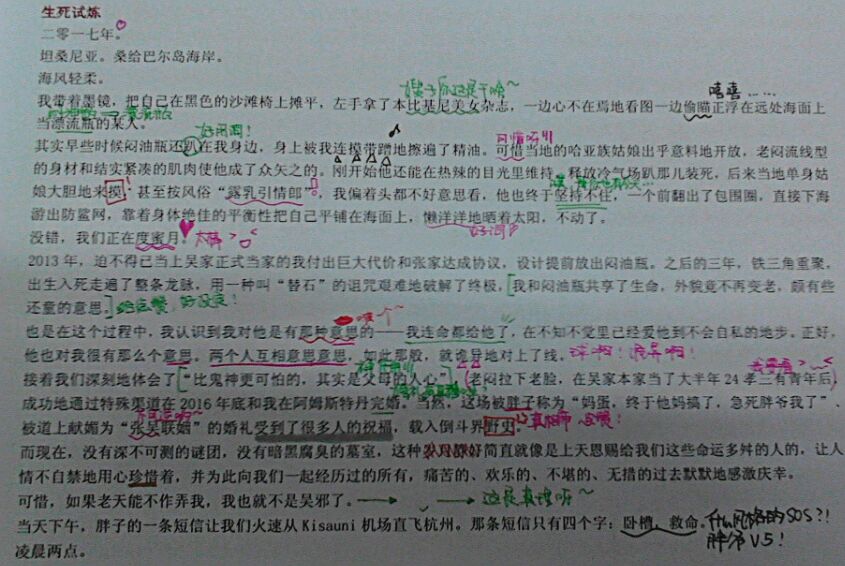 生死试炼
二零一七年。
坦桑尼亚。桑给巴尔岛海岸。
海风轻柔。
嘻嘻……
我带着墨镜，把自己在黑色的沙滩椅上摊平，左手拿了本比基尼美女杂志，一边心不在焉地看图一边偷瞄正浮在远处海面上
当漂流瓶的某人。
好闷润！
可惜
其实早些时候闷油瓶还趴在我身边，身上被我连摸带蹭地擦遍了精油。可惜当地的哈亚族姑娘出乎意料地开放，老闷流线型
的身材和结实紧凑的肌肉使他成了众矢之的。刚开始他还能在热辣的目光里维持、释放冷气场趴那儿装死，后来当地单身姑
娘大胆地来摸，甚至按风俗“露乳引情郎”，我偏着头都不好意思看，他也终于坚持不住，一个前翻出了包围圈，直接下海
游出防鲨网，靠着身体绝佳的平衡性把自己平铺在海面上，懒洋洋地晒着太阳，不动了。
没错，我们正在度蜜月。
好词
2013 年，迫不得已当上吴家正式当家的我付出巨大代价和张家达成协议，设计提前放出闷油瓶。之后的三年，铁三角重聚，
出生入死走遍了整条龙脉，用一种叫“替石”的诅咒艰难地破解了终极，我和闷油瓶共享了生命，外貌竟不再变老，颇有些
还童的意思。
也是在这个过程中，我认识到我对他是有那种意思的——我连命都给他了，在不知不觉里已经爱他到不会自私的地步。正好，
他也对我很有那么个意思。两个人互相意思意思，如此那般，就诡异地对上了线。
接着我们深刻地体会了“比鬼神更可怕的，其实是父母的人心”（老闷拉下老脸，在吴家本家当了大半年 24 孝三有青年后，
成功地通过特殊渠道在 2016 年底和我在阿姆斯特丹完婚。当然，这场被胖子称为“妈蛋，终于他妈搞了，急死胖爷我了”、
被道上献媚为“张吴联姻”的婚礼受到了很多人的祝福，载入倒斗界野史。
而现在，没有深不可测的谜团，没有暗黑腐臭的墓室，这种岁月静好简直就像是上天恩赐给我们这些命运多舛的人的，让人
情不自禁地用心珍惜着，并为此向我们一起经历过的所有，痛苦的、欢乐的、不堪的、无措的过去默默地感激庆幸。
可惜，如果老天能不作弄我，我也就不是吴邪了。 → → 这是真理呀~
当天下午，胖子的一条短信让我们火速从 Kisauni 机场直飞杭州。那条短信只有四个字：卧槽，救命。 什么风格的SOS?!
凌晨两点。 胖爷V5！